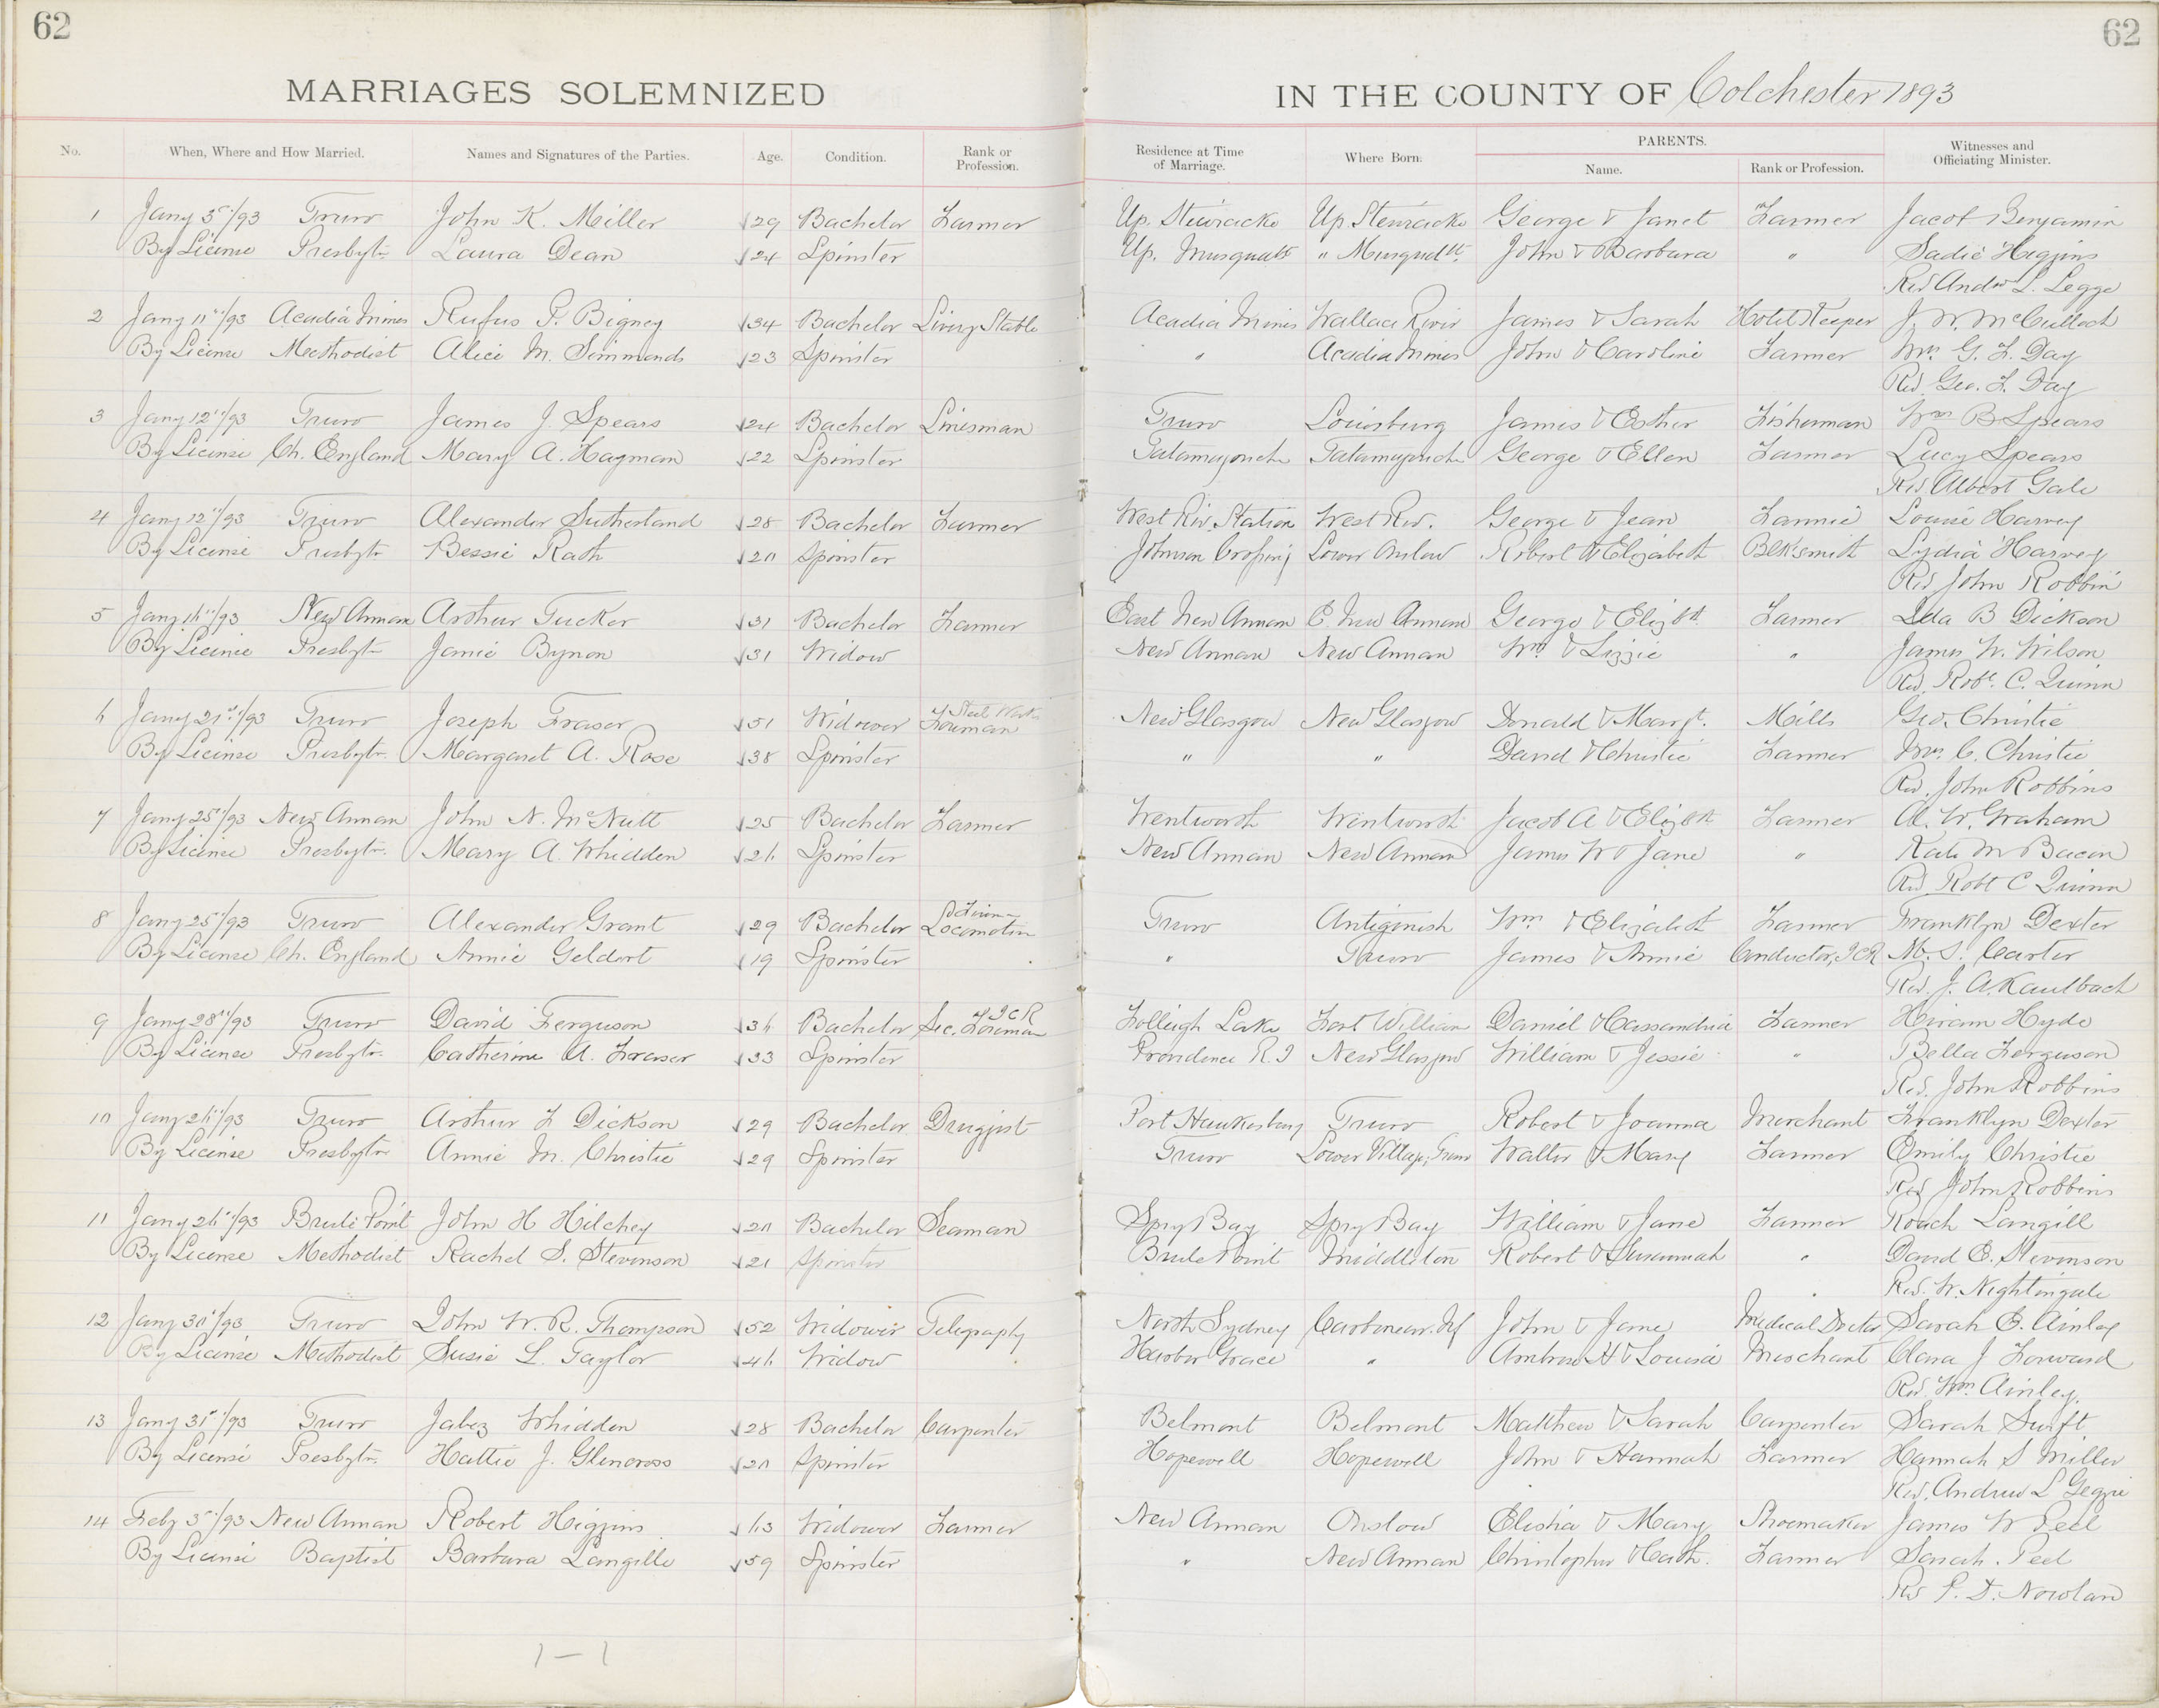 62
62
MARRIAGES SOLEMNIZED IN THE COUNTY OF Colchester 1893
No. When, Where and How Married. Names and Signatures of the Parties. Age. Condition. Rank or Profession. Residence at Time of Marriage. Where Born. PARENTS. Name. Rank or Profession. Witnesses and Officiating Minister.
1 Jany 3"/93 Truro John K. Miller 29 Bachelor Farmer Up. Stewiacke Up Stewiacke George & Janet Farmer Jacob Benjamin
By License Presbytn Laura Dean 24 Spinster Up. Musquodt " Musquodt John & Barbara " Sadie Higgins
Rev Andw L. Legge
2 Jany 11"/93 Acadia Mines Rufus P. Bigney 34 Bachelor Livery Stable Acadia Mines Wallace River James & Sarah Hotel Keeper J. W. McCulloch
By License Methodist Alice M. Simmonds 23 Spinster " Acadia Mines John & Caroline Farmer Mrs G. F. Day
Rev. Geo. F. Day
3 Jany 12"/93 Truro James J. Spears 24 Bachelor Linesman Truro Louisburg James & Esther Fisherman Wm B Spears
By License Ch. England Mary A. Hayman 22 Spinster Tatamagouche Tatamagouche George & Ellen Farmer Lucy Spears
Rev Albert Gale
4 Jany 12"/93 Truro Alexander Sutherland 28 Bachelor Farmer West Riv. Station West Riv. George & Jean Farmer Louise Harvey
By License Presbytn Bessie Rath 20 Spinster Johnson Crossing Lower Onslow Robert & Elizabeth Blksmith Lydia Harvey
Rev John Robbin
5 Jany 16"/93 New Annan Arthur Tucker 31 Bachelor Farmer East New Annan E. New Annan George & Elizbth Farmer Ida B Dickson
By License Presbytn Janie Bynon 31 Widow New Annan New Annan Wm & Lizzie " James W. Wilson
Rev. Robt. C. Quinn
6 Jany 21st/93 Truro Joseph Fraser 51 Widower Steel Works Foreman New Glasgow New Glasgow Donald & Margt. Mills Geo. Christie
By License Presbytn. Margaret A. Rose 38 Spinster " " David & Christie Farmer Mrs. C. Christie
Rev. John Robbins
7 Jany 25"/93 New Annan John N. McNutt 25 Bachelor Farmer Wentworth Wentworth Jacob A & Elizbth Farmer Al. W. Graham
By License Presbytn. Mary A. Whidden 26 Spinster New Annan New Annan James W & Jane " Kate M Bacon
Rev Robt C Quinn
8 Jany 25"/93 Truro Alexander Grant 29 Bachelor Locomotive Truro Antigonish Wm & Elizabeth Farmer Franklyn Dexter
By License Ch. England Annie Geldert 19 Spinster " Truro James & Annie Conductor, ICR M. S. Carter
Rev. J. A. Kaulbach
9 Jany 28"/93 Truro David Ferguson 36 Bachelor Sec. Foreman ICR Folleigh Lake Fort William Daniel & Cassandria Farmer Hiram Hyde
By License Presbytn. Catherine A. Fraser 33 Spinster Providence R.I New Glasgow William & Jessie " Bella Ferguson
Rev. John Robbins
10 Jany 26"/93 Truro Arthur F Dickson 29 Bachelor Druggist Port Hawkesbury Truro Robert & Joanna Merchant Franklyn Dexter
By License Presbytn Annie M. Christie 29 Spinster Truro Lower Village, Truro Walter & Mary Farmer Emily Christie
Rev John Robbins
11 Jany 26"/93 Brule Point John H Hilchey 20 Bachelor Seaman Spry Bay Spry Bay William & Jane Farmer Roach Langill
By License Methodist Rachel S. Stevenson 21 Spinster Brule Point Middleton Robert & Susannah " David E. Stevenson
Rev. W. Nightingale
12 Jany 30"/93 Truro John W. R. Thompson 52 Widower Telegraphy North Sydney Carbonear. Nf John & Jane Medical Doctor Sarah E. Ainley
By License Methodist Susie L. Taylor 46 Widow Harbor Grace " Ambrose H & Louisa Merchant Clara J Forward
Rev. Wm Ainley.
13 Jany 31st/93 Truro Jabez Whidden 28 Bachelor Carpenter Belmont Belmont Matthew & Sarah Carpenter Sarah Swift
By License Presbytn. Hattie J. Glencross 20 Spinster Hopewell Hopewell John & Hannah Farmer Hannah S Miller
Rev. Andrew L Geggie
14 Feby 3"/93 New Annan Robert Higgins 63 Widower Farmer New Annan Onslow Elisha & Mary Shoemaker James W Peel
By License Baptist Barbara Langille 59 Spinster " New Annan Christopher & Cath. Farmer Sarah Peel
Rev P. D. Nowlan
1-1